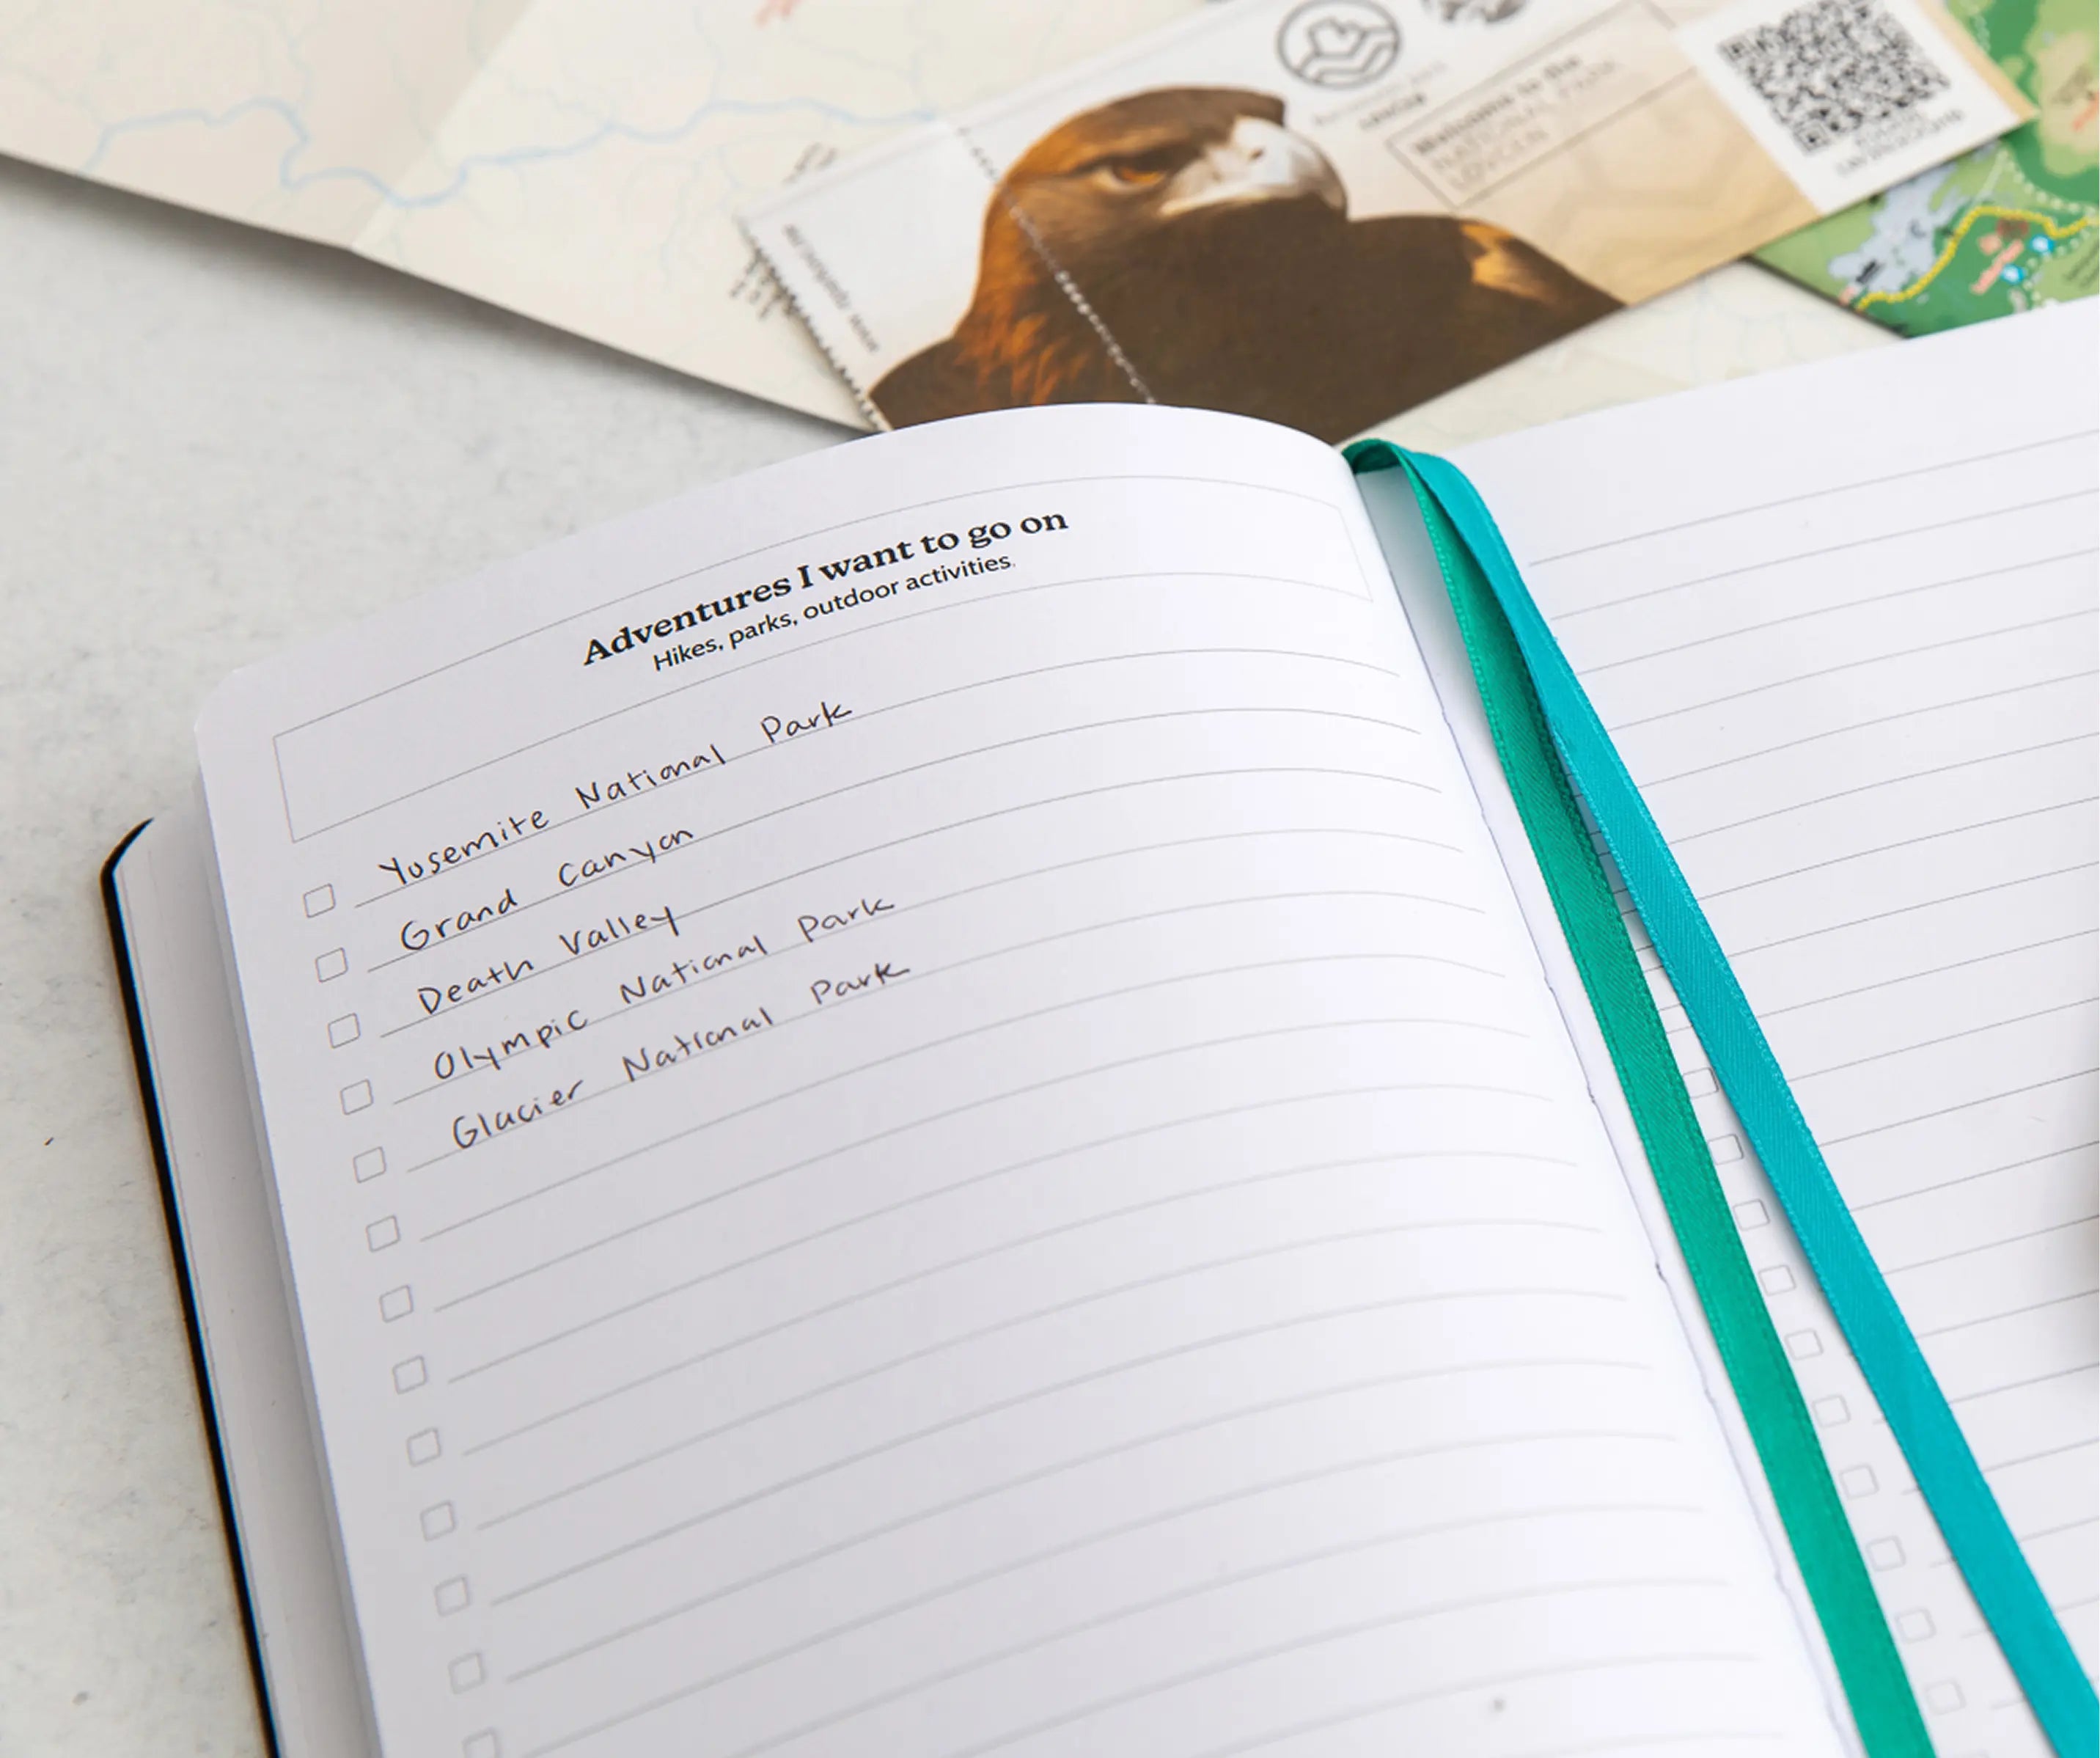 Welcome to the
NATIONAL PARK
LOVĆEN
Adventures I want to go on
Hikes, parks, outdoor activities.
Yosemite National Park
Grand Canyon
Death Valley
Olympic National Park
Glacier National Park